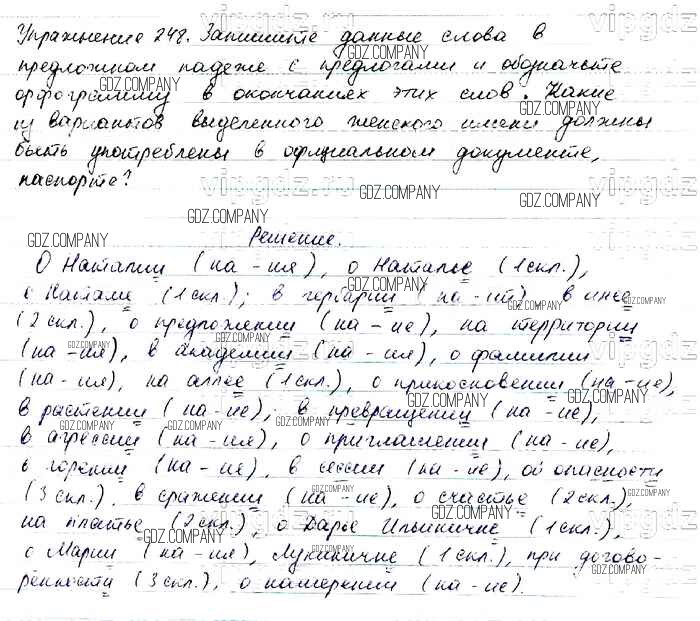 Упражнение 248. Запишите данные слова в
предложном падеже с предлогами и обозначьте
орфограмму в окончаниях этих слов. Какие
из вариантов выделенного женского имени должны
быть употреблены в официальном документе,
паспорте?
Решение.
О Наталии (на -ия), о Наталье (1 скл.),
о Натале (1 скл.); в гербарии (на -ий), в инее
(2 скл.), о предложении (на -ие), на территории
(на -ия), в академии (на -ия), о фамилии
(на -ия), на аллее (1 скл.), о прикосновении (на -ие),
в растении (на -ие); в превращении (на -ие),
в агрессии (на -ия), о приглашении (на -ие),
о горении (на -ие), в сессии (на -ие), об опасности
(3 скл.), в сражении (на -ие), о счастье (2 скл.),
на платье (2 скл.), о Дарье Ильиничне (1 скл.),
о Марии (на -ия), Лукиничне (1 скл.), при догово-
ренности (3 скл.), о намерении (на -ие).